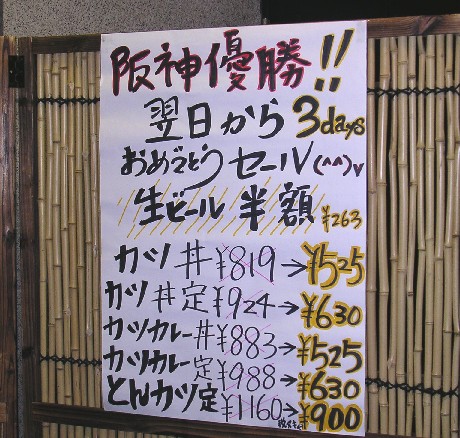 阪神優勝!!
翌日から3days
おめでとうセール(^^)v
生ビール半額 ¥263
カツ丼¥819→¥525
カツ丼定¥924→¥630
カツカレー丼¥883→¥525
カツカレー定¥988→¥630
とんカツ定¥1160→¥900